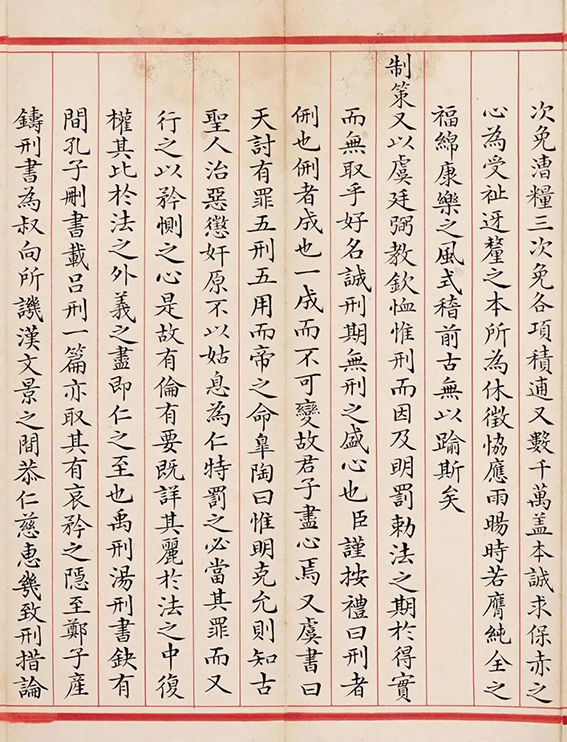 次免漕糧三次免各項積逋又數千萬盖本誠求保赤之
心為受祉迓釐之本所為休徵恊應雨暘時若膺純全之
福綿康樂之風式稽前古無以踰斯矣
制策又以虞廷弼教欽恤惟刑而因及明罰勅法之期於得實
而無取乎好名誠刑期無刑之盛心也臣謹按禮曰刑者
侀也侀者成也一成而不可變故君子盡心焉又虞書曰
天討有罪五刑五用而帝之命臯陶曰惟明克允則知古
聖人治惡懲奸原不以姑息為仁特罰之必當其罪而又
行之以矜惻之心是故有倫有要既詳其麗於法之中復
權其比於法之外義之盡即仁之至也禹刑湯刑書缺有
間孔子刪書載呂刑一篇亦取其有哀矜之隱至鄭子産
鑄刑書為叔向所譏漢文景之間恭仁慈惠幾致刑措論